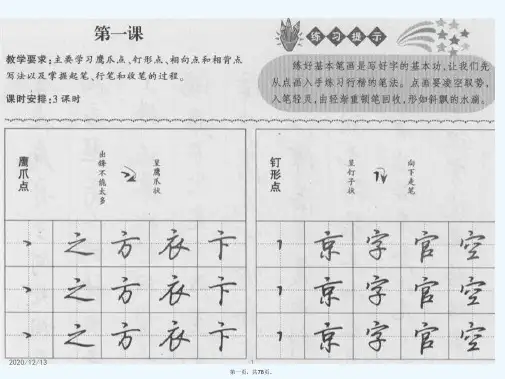 第一课
教学要求:主要学习鹰爪点、钉形点、相向点和相背点
写法以及掌握起笔、行笔和收笔的过程。
课时安排:3课时
练习提示
练好基本笔画是写好字的基本功,让我们先
从点画入手练习行楷的笔法。点画要凌空取势,
入笔轻灵,由轻渐重顿笔回收,形如斜飘的水滴。
鹰爪点
出锋不能太多
呈鹰爪状
钉形点
呈钉子状
向下走笔
之 方 衣 卞
京 字 官 空
之 方 衣 卞
京 字 官 空
之 方 衣 卞
京 字 官 空
2020/12/13
1
第一页,共78页。